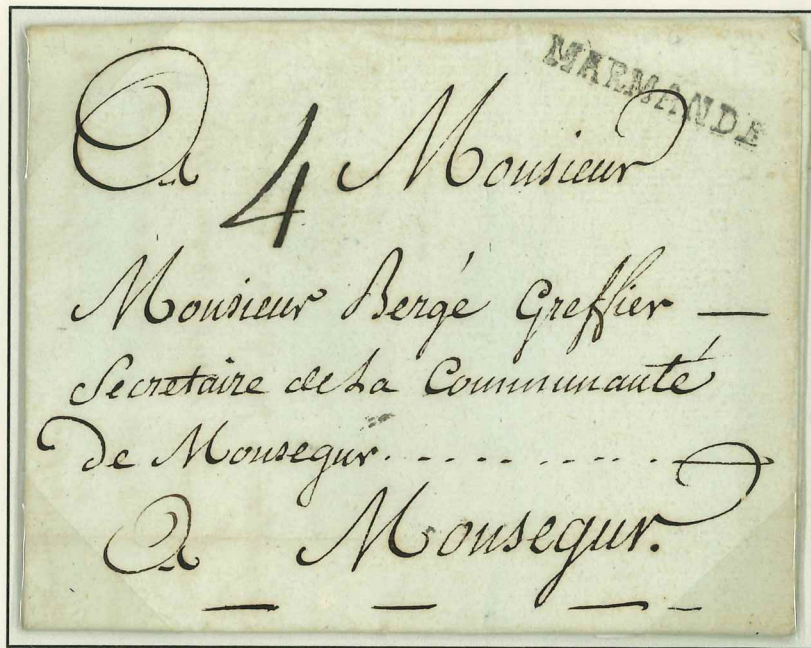 MARMANDE
A 4 Monsieur
Monsieur Bergé Greffier —
Secretaire de La Communauté
de Monsegur. - - - - - - - - -
A Monsegur.